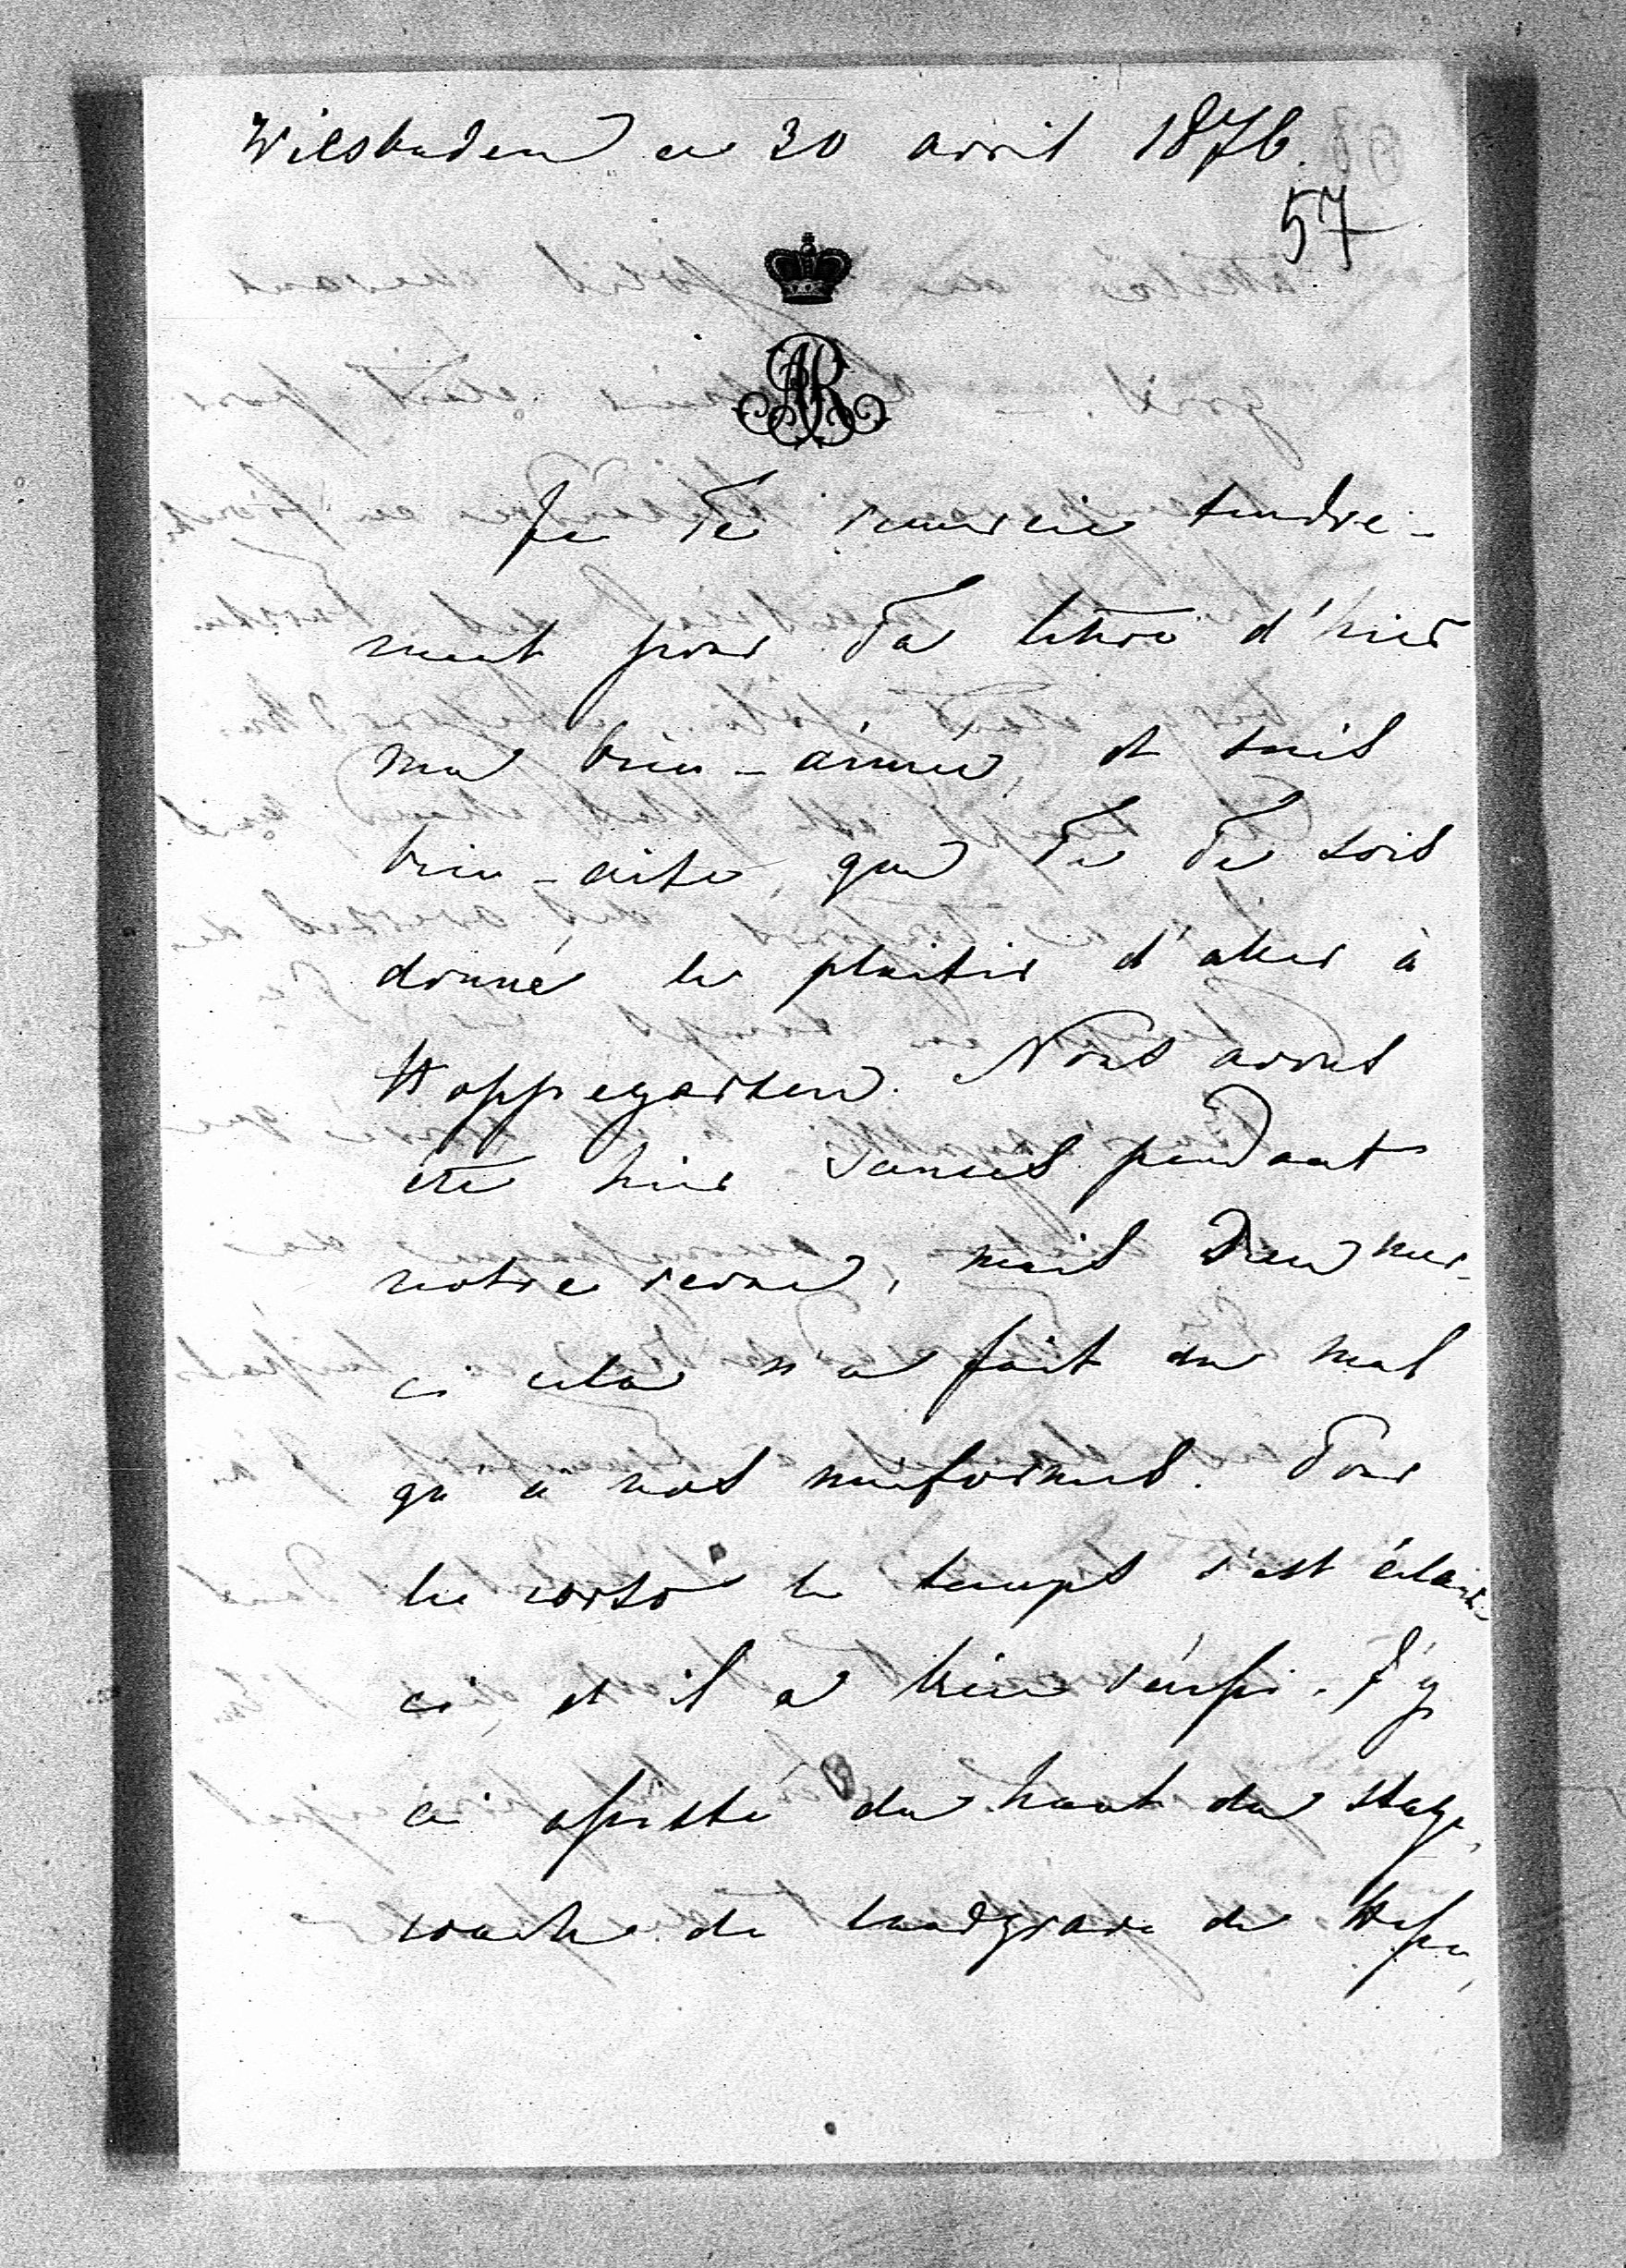 Wiesbaden ce 30 avril 1876.
57
AR
Je Te remercie tendre-
ment pour Ta lettre d'hier
ma bien-aimée, et suis
bien-aise que Tu Te sois
donné le plaisir d'aller à
Hoppegarten. Nous avons
été hier pendant
notre revue, mais Dieu mer-
ci cela n'a fait du mal
qu'à nos uniformes. Pour
le corso le temps s'est éclair-
ci et il a bien réussi. J'y
ai assisté du haut du stage,
coach du Landgrave de Hesse,